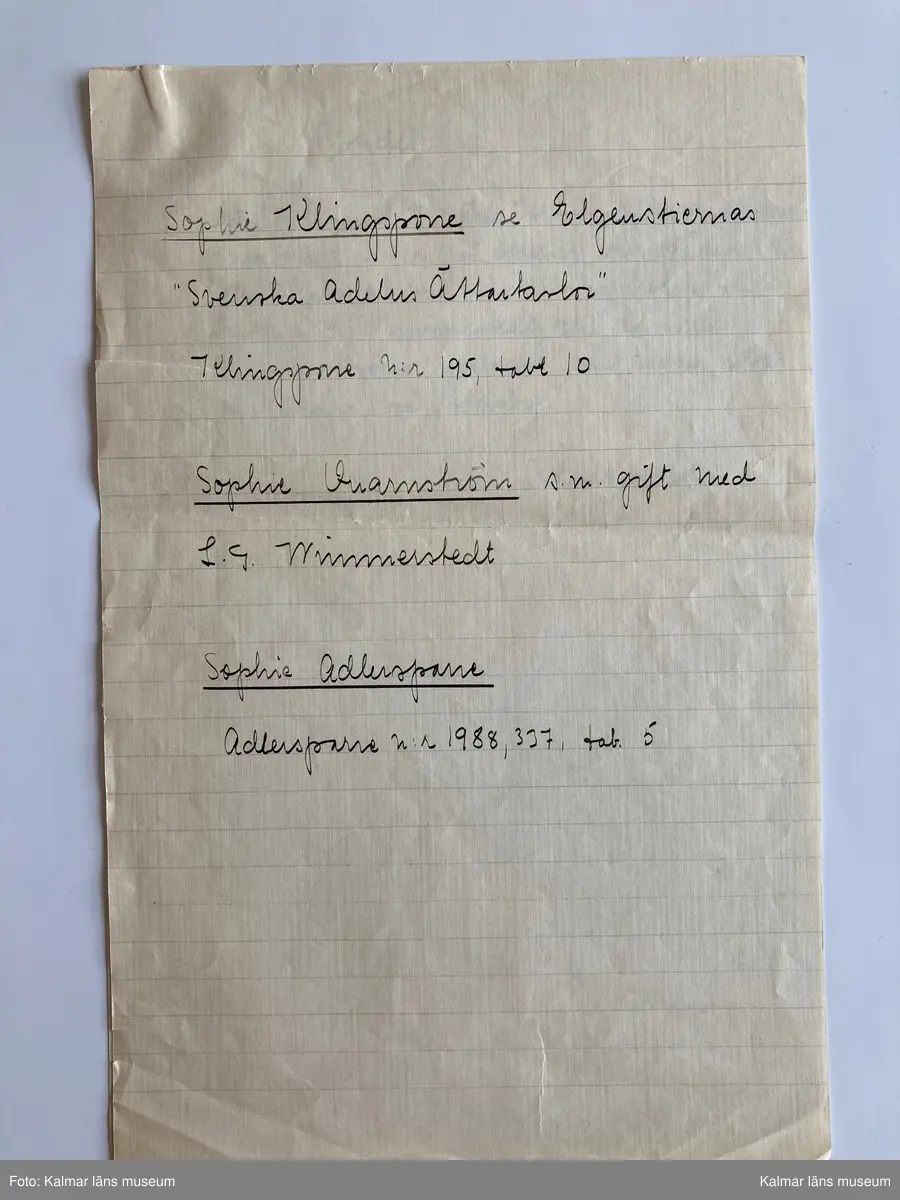 Sophie Klingspore se Elgenstiernas
"Svenska Adelns Ättartavlor"
Klingspore n:r 195, tabl 10
Sophie Qvarnström s.m. gift med
L.G. Wimmerstedt
Sophie Adlersparre
Adlersparre n:r 1988, 337, tab. 5
Foto: Kalmar läns museum
Kalmar läns museum